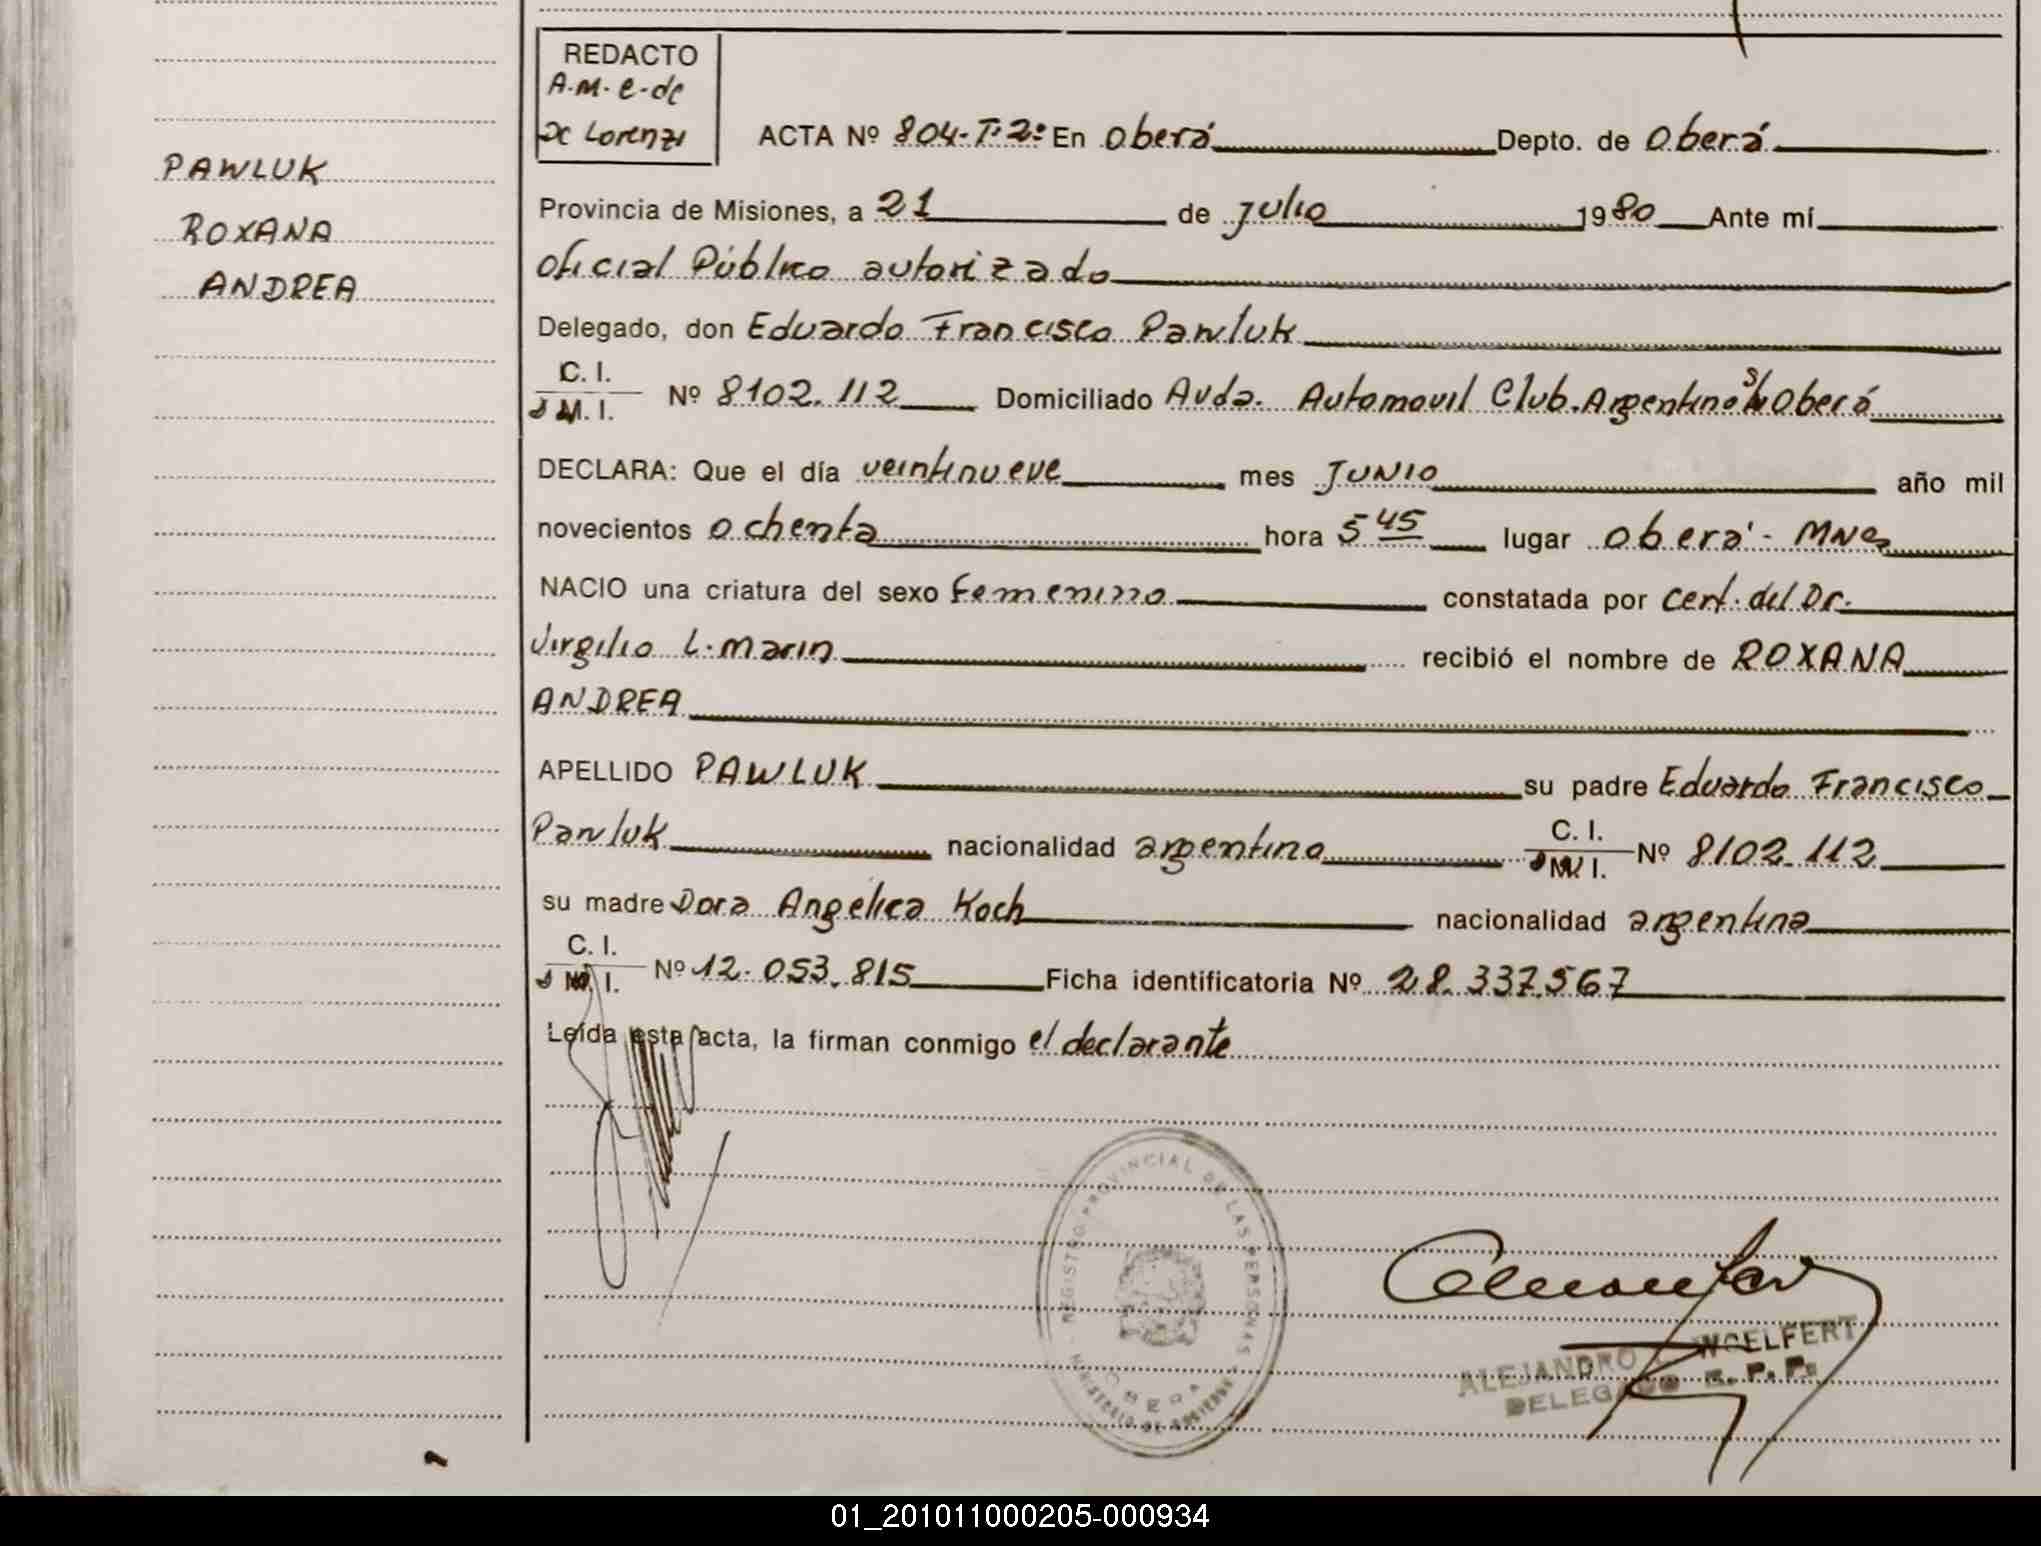 REDACTO
A.M. e-de
De Lorenzi
ACTA Nº 804-T.2º En Oberá Depto. de Oberá
PAWLUK
ROXANA
ANDREA
Provincia de Misiones, a 21 de Julio 1980 Ante mí
Oficial Público autorizado
Delegado, don Eduardo Francisco Pawluk
C. I.
M. I. Nº 8102.112 Domiciliado Avda. Automovil Club Argentino s/n Oberá
DECLARA: Que el día veintinueve mes JUNIO año mil
novecientos ochenta hora 5 45 lugar Oberá - MNes
NACIO una criatura del sexo femenino constatada por cert. del Dr.
Virgilio L. Marin recibió el nombre de ROXANA
ANDREA
APELLIDO PAWLUK su padre Eduardo Francisco
Pawluk nacionalidad argentina C. I.
M. I. Nº 8102.112
su madre Dora Angélica Koch nacionalidad argentina
C. I.
M. I. Nº 12.053.815 Ficha identificatoria Nº 28.337.567
Leída esta acta, la firman conmigo el declarante
REGISTRO PROVINCIAL DE LAS PERSONAS
OBERA
MINISTERIO DE GOBIERNO
ALEJANDRO WOELFERT
DELEGADO R. P. P.
01_201011000205-000934